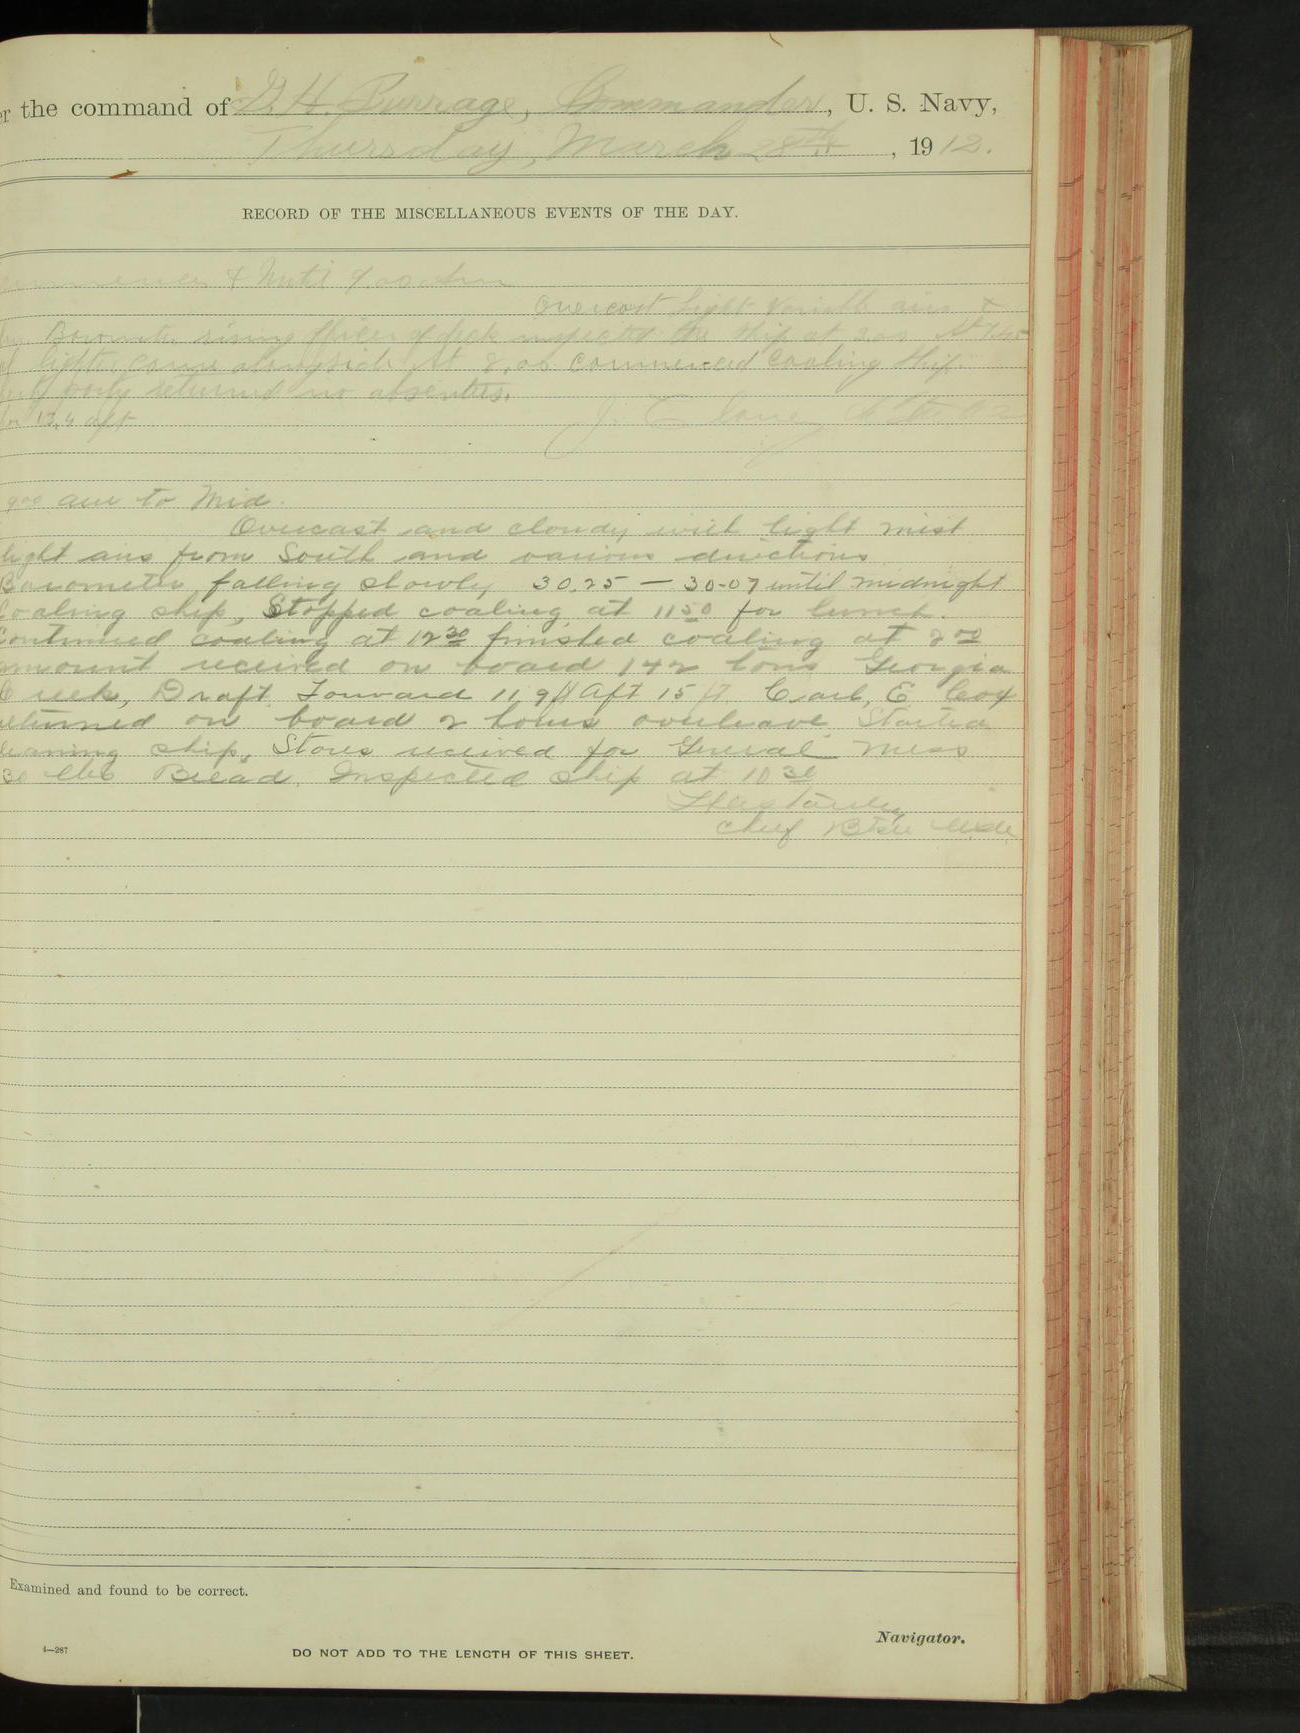 er the command of G. H. Burrage, Commander, U. S. Navy,
Thursday, March 28th, 1912.
RECORD OF THE MISCELLANEOUS EVENTS OF THE DAY.
& Until 9.00 a.m.
Overcast Light variable airs &
Barometer rising Officer of deck inspected the ship at 2.00 At 7.45
lighter came alongside At 8.00 commenced coaling ship.
party returned no absentees.
13.4 aft
J.
900 am to Mid.
Overcast and cloudy with light mist
light airs from South and various directions
Barometer falling slowly 30.25 — 30.07 until midnight
Coaling ship, Stopped coaling at 1150 for lunch.
Continued coaling at 1230 finished coaling at 200
amount received on board 142 tons Georgia
Creek, Draft Forward 11.9 ft Aft 15 ft. Carl, E Cox
returned on board 2 hours overleave Started
cleaning ship, Stores received for General Mess
30 lbs Bread. Inspected ship at 1030
Chief Btsn U.S.N.
Examined and found to be correct.
Navigator.
4—287
DO NOT ADD TO THE LENGTH OF THIS SHEET.